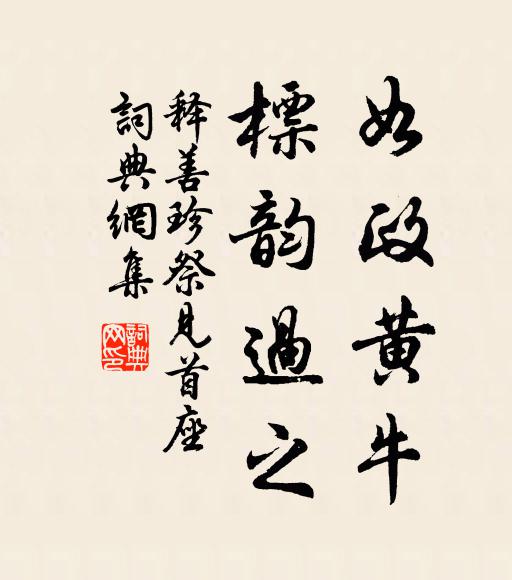 如政黄牛
標韵過之
释善珍祭見首座
詞典網集
詞典网印